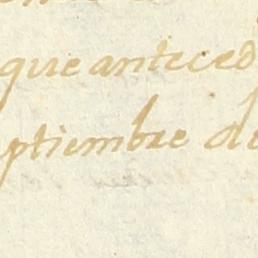 que anteced
ptiembre de